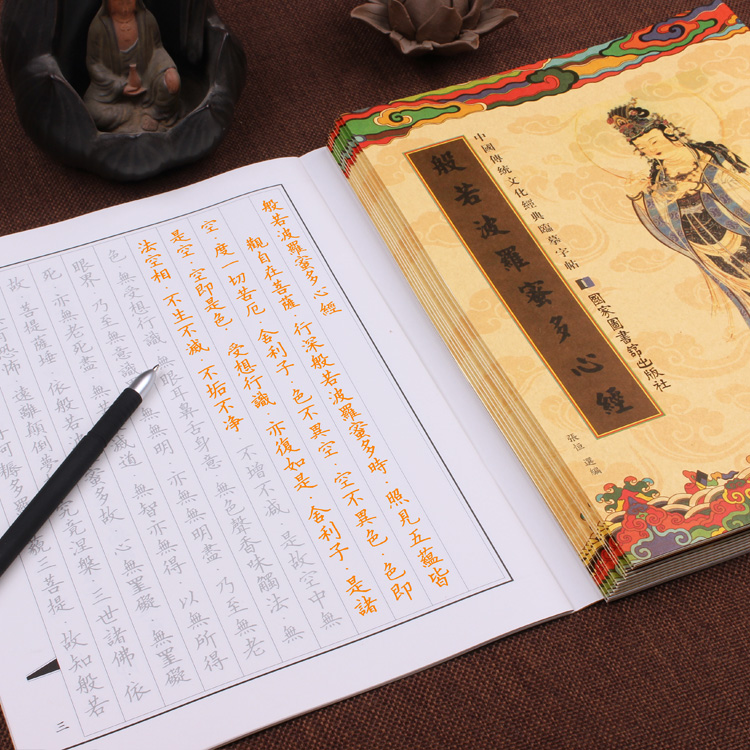 般若波羅蜜多心經
觀自在菩薩·行深般若波羅蜜多時·照見五蘊皆
空·度一切苦厄·舍利子·色不異空·空不異色·色即
是空·空即是色·受想行識·亦復如是·舍利子·是諸
法空相·不生不滅·不垢不净·不增不減·是故空中無
色·無受想行識·無眼耳鼻舌身意·無色聲香味觸法·無
眼界·乃至無意識·無無明·亦無無明盡·乃至無老
死·亦無老死盡·滅道·無智亦無得·以無所得
故·菩提薩埵·依般若波羅蜜多故·心無罣礙·無罣礙
恐怖·遠離顛倒夢·究竟涅槃·三世諸佛·依
阿耨多羅三藐三菩提·故知般若
三
中國傳統文化經典臨摹字帖 1 國家圖書館出版社
般若波羅蜜多心經
張恒 選編